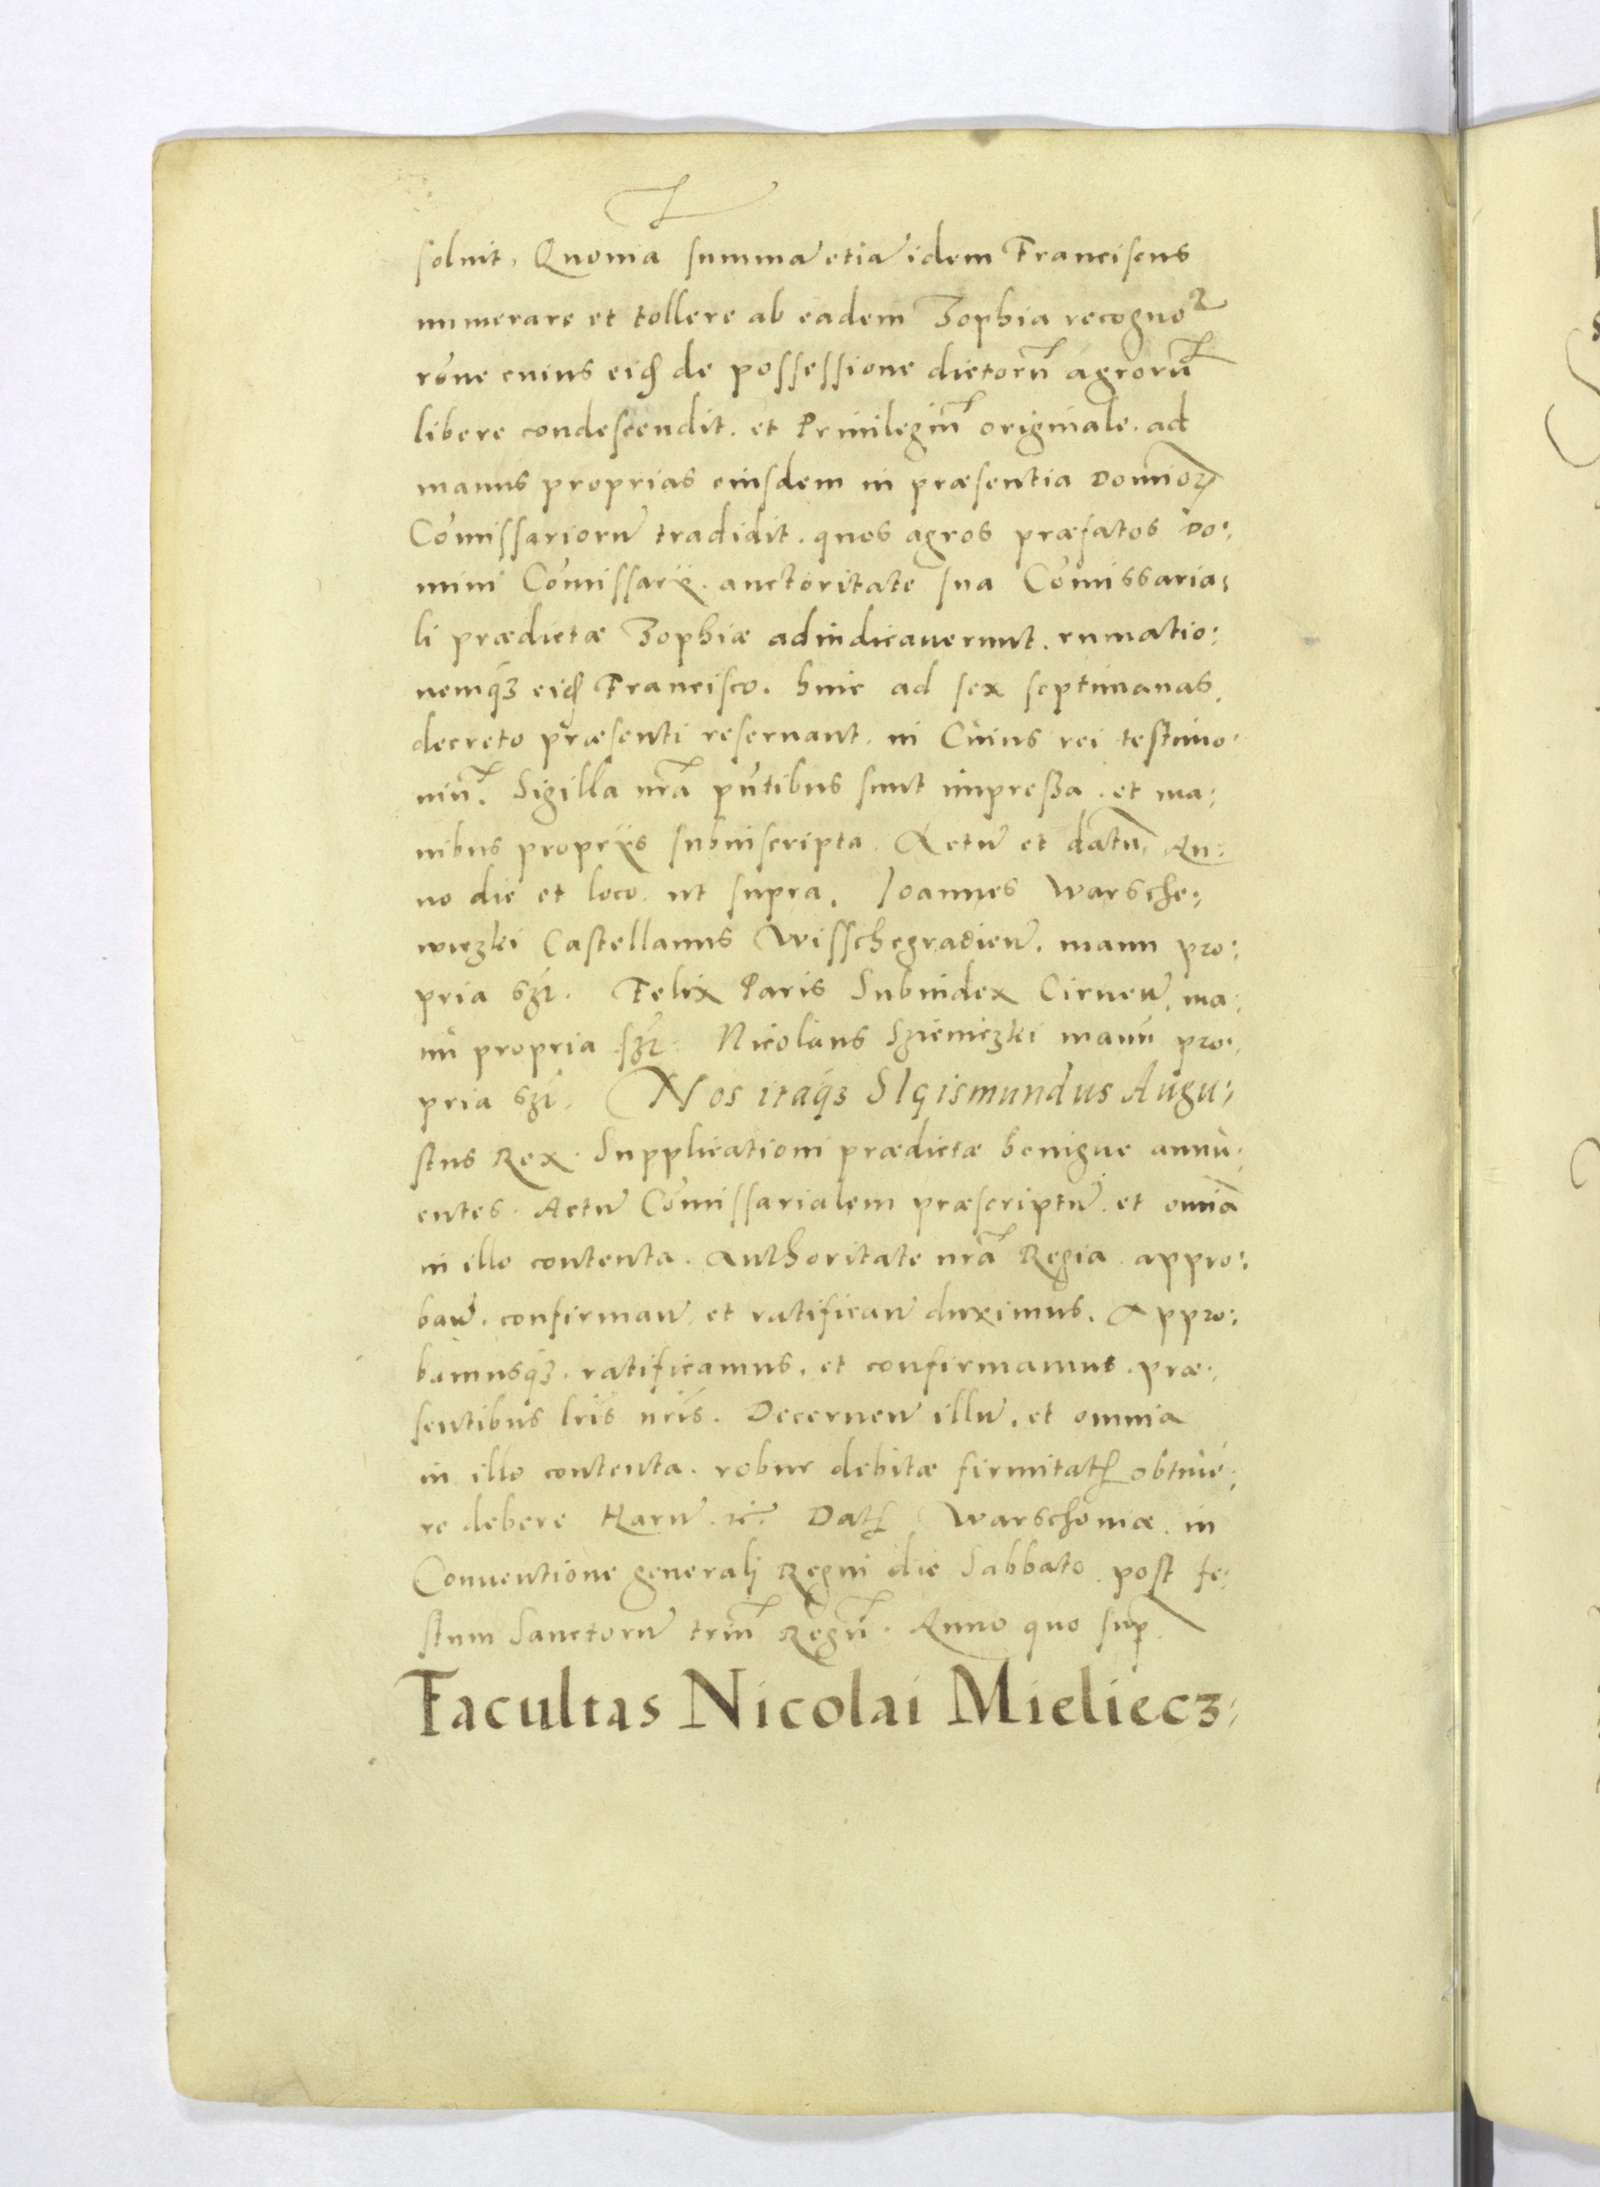 soluit. Quoniā summā etiā idem Franciscus
numerare et tollere ab eadem Zophia recognoꝛ
rōne cuius eiđ de possessione dictorū agrorū
libere condescendit. et Priuilegiū originale. ad
manus proprias eiusdem in præsentia Dominoꝝ
Cōmissariorū tradidit. quos agros præfatos Do:
mini Cōmissarij. auctoritate sua Cōmissaria:
li prædictæ Zophiæ adiudicauerunt.
nemqȝ eiđ Francisco. huic ad sex septimanas.
decreto præsenti reseruant. in Cuius rei testimo:
niū. Sigilla nrā pn̄tibus sunt impreßa. et ma:
nibus proprijs subinscripta. Actū et datū, An:
no die et loco. ut supra. Ioannes Warsche:
wiczki Castellanus Wisschegradien̄. manu pro:
pria sꝫt. Felix Paris Subiudex Cirnen̄. ma:
nū propria sꝫt. Nicolaus Sꝫieniczki manū pro:
pria sꝫt. Nos itaqȝ SIgismundus Augu:
stus Rex. Supplicationi prædictæ benigne annu:
entes. Actū Cōmissarialem præscriptū. et omniā
in illo contenta. Authoritate nrā Regia. appro:
ban̄. confirman̄ et ratifican̄ duximus. Appro:
bamusqȝ. ratificamus. et confirmamus. præ:
sentibus lris nris. Decernen̄ illū. et omnia
in illo contenta. robur debitæ firmitatꝭ obtine:
re debere Harū. ꝛc̄. Datꝭ Warschoniæ. in
Conuentione generalj Regni die Sabbato post fe:
stum Sanctorū triū Regū. Anno quo sup̱
Facultas Nicolai Mieliecz: